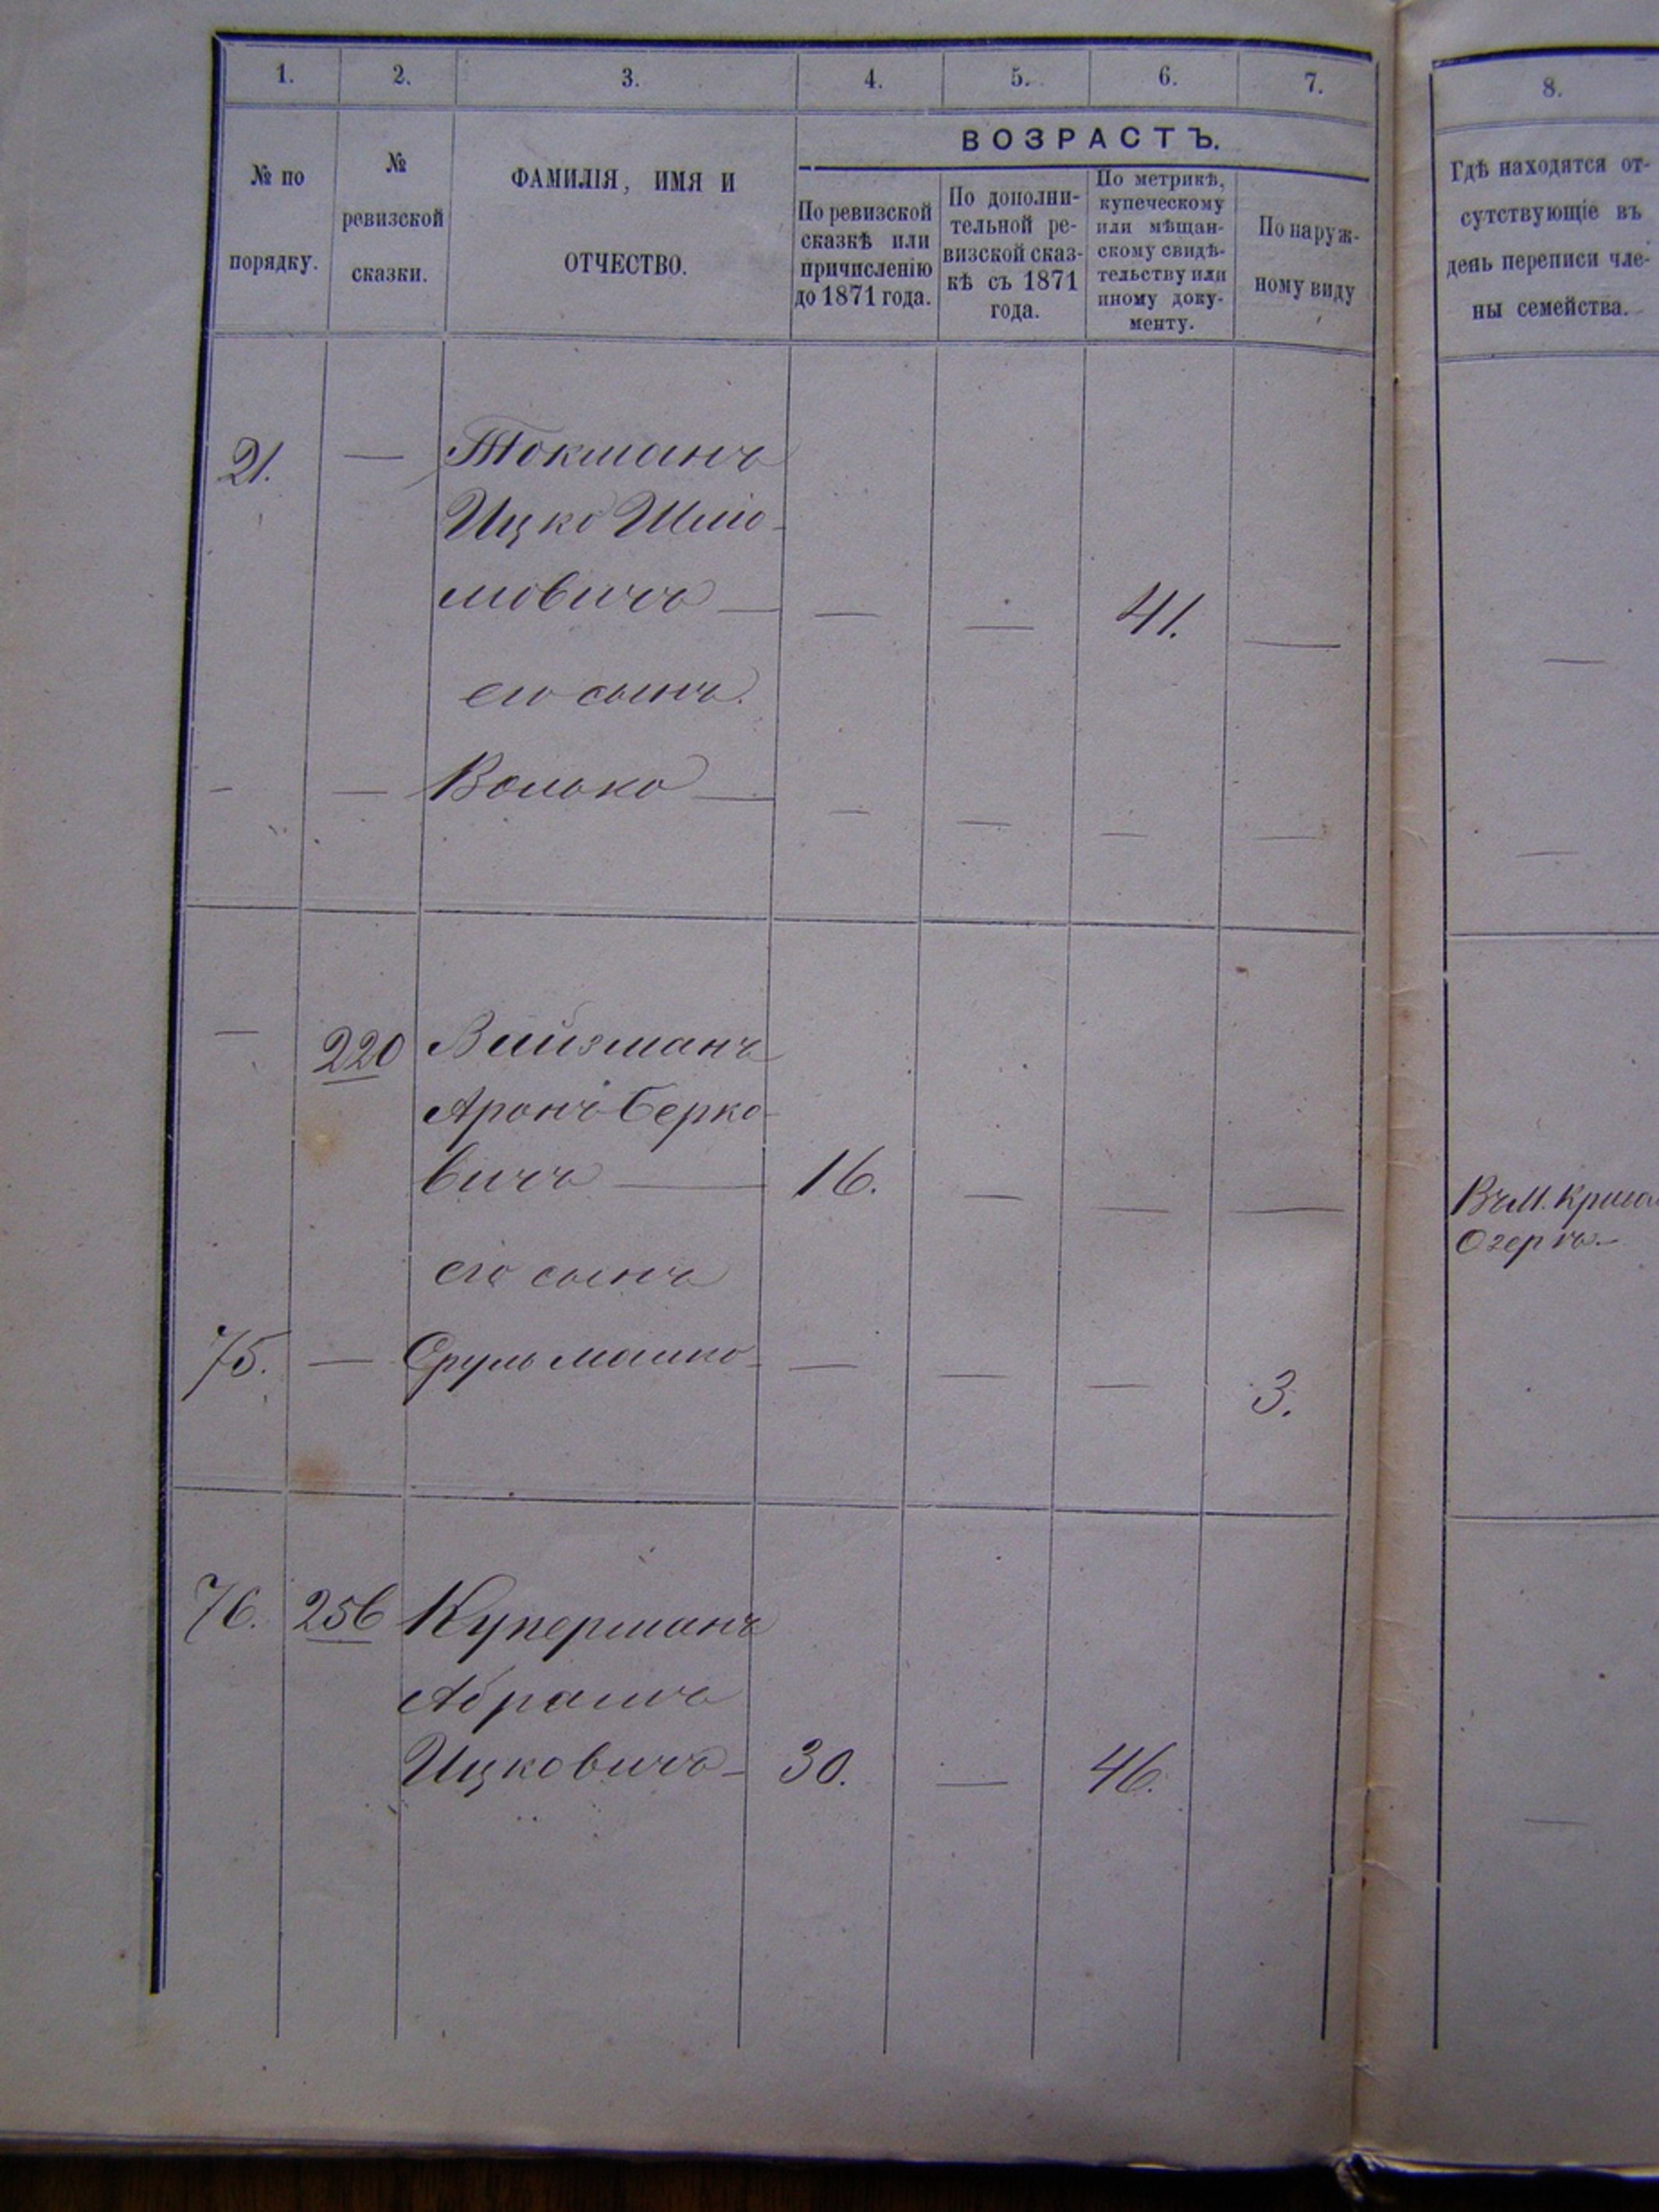 1. 2. 3. 4. 5. 6. 7. 8.
ВОЗРАСТЪ.
№ по
порядку.
№
ревизской
сказки.
ФАМИЛІЯ, ИМЯ И
ОТЧЕСТВО.
По ревизской
сказкѣ или
причисленію
до 1871 года.
По дополни-
тельной ре-
визской сказ-
кѣ съ 1871
года.
По метрикѣ,
купеческому
или мѣщан-
скому свидѣ-
тельству или
иному доку-
менту.
По наруж-
ному виду
Гдѣ находятся от-
сутствующіе въ
день переписи чле-
ны семейства.
21. — Токманъ
Ицко Шлio-
мовичъ — — — 41. — —
его сынъ.
- — Волько — — — — — —
— 220 Вайзманъ
Аронъ Берко-
вичъ — 16. — — — Въ М. Криво
Озеръ.-
его сынъ
75. — Сруль Мошко- — — — 3.
76. 256 Куперманъ
Абрамъ
Ицковичъ- 30. — 46. —